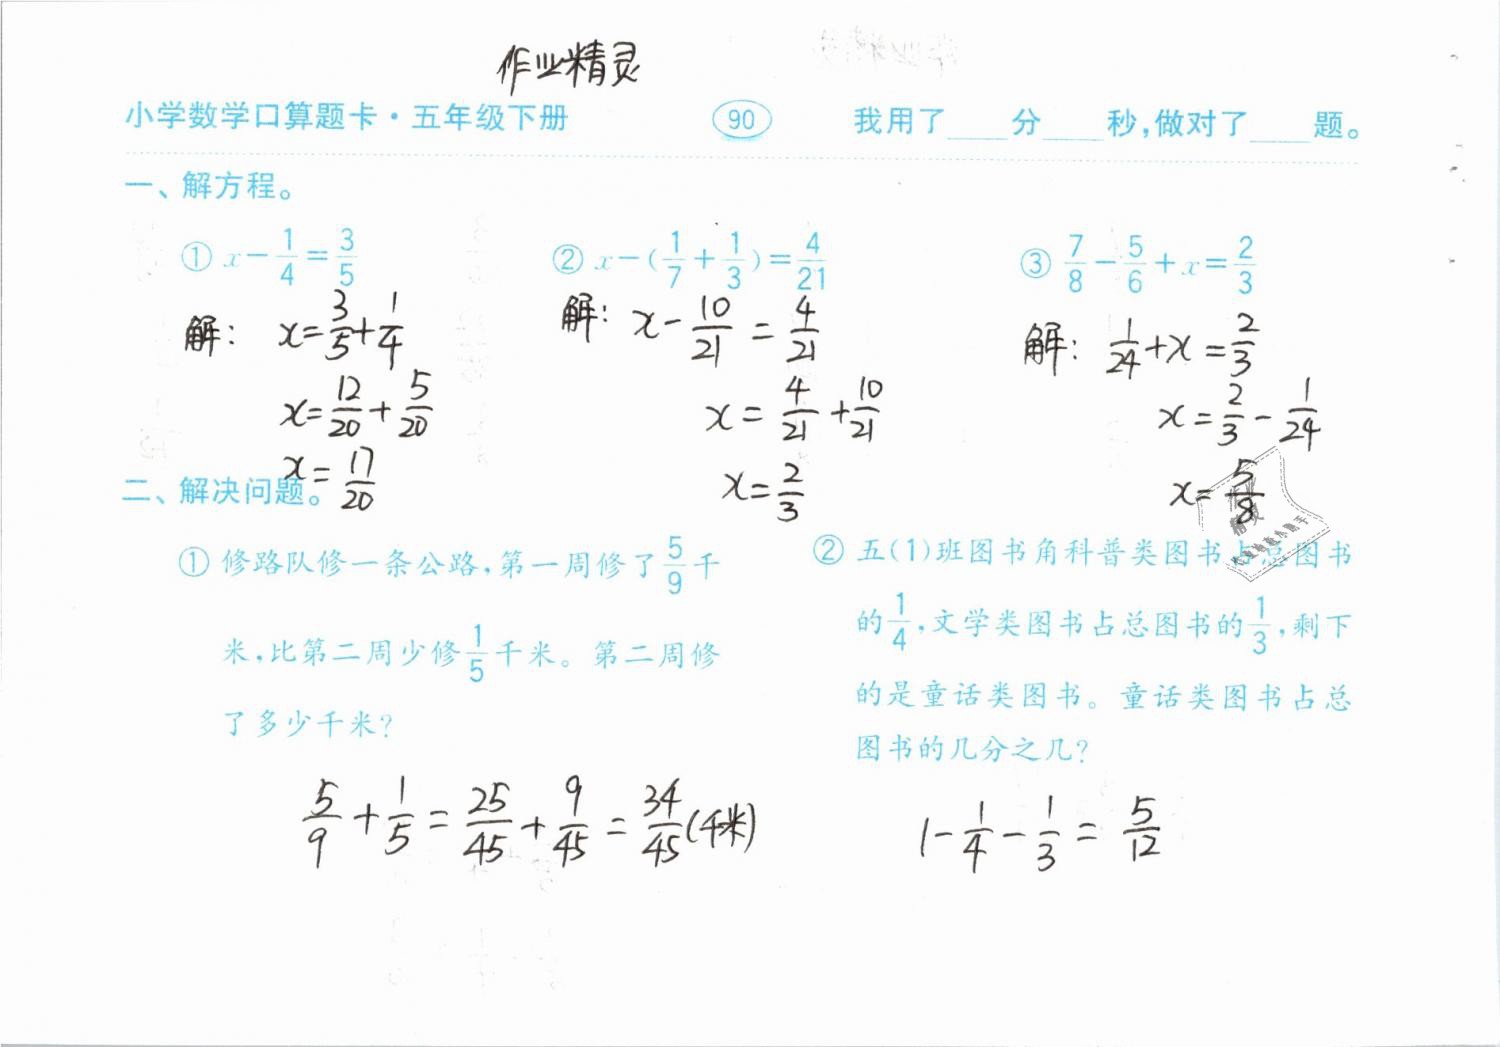 作业精灵
小学数学口算题卡·五年级下册 90 我用了____分____秒,做对了____题。
一、解方程。
① x-1/4=3/5 ② x-(1/7+1/3)=4/21 ③ 7/8-5/6+x=2/3
解: x=3/5+1/4 解: x-10/21=4/21 解: 1/24+x=2/3
x=12/20+5/20 x=4/21+10/21 x=2/3-1/24
x=17/20 x=2/3 x=5/8
二、解决问题。
① 修路队修一条公路,第一周修了5/9千
米,比第二周少修1/5千米。第二周修
了多少千米?
5/9+1/5=25/45+9/45=34/45(千米)
② 五(1)班图书角科普类图书占总图书
的1/4,文学类图书占总图书的1/3,剩下
的是童话类图书。童话类图书占总
图书的几分之几?
1-1/4-1/3=5/12
作业
精灵